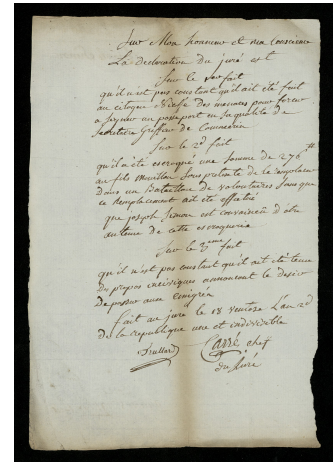 Sur Mon honneur et ma Conscience
La declaration du juré est
Sur le 1er fait
qu'il n'est pas constant qu'il ait été fait
au citoyen des menaces pour forcer
a signer un passeport en sa qualité de
Secretaire Greffier de Commercy
Sur le 2d fait
qu'il a été escroqué une somme de 276 tt
au fils Mouillon Sous pretexte de le remplacer
dans un Bataillon de volontaires Sans que
ce Remplacement ait été effectué
que joseph Simon est convaincu d'être
auteur de cette escroquerie
Sur le 3eme fait
qu'il n'est pas constant qu'il ait été tenu
des propos inciviques annoncant le desir
de passer aux émigrés
fait au juré le 18 ventose L'an 2d
de la republique une et indivisible
Carré chef
du Juré